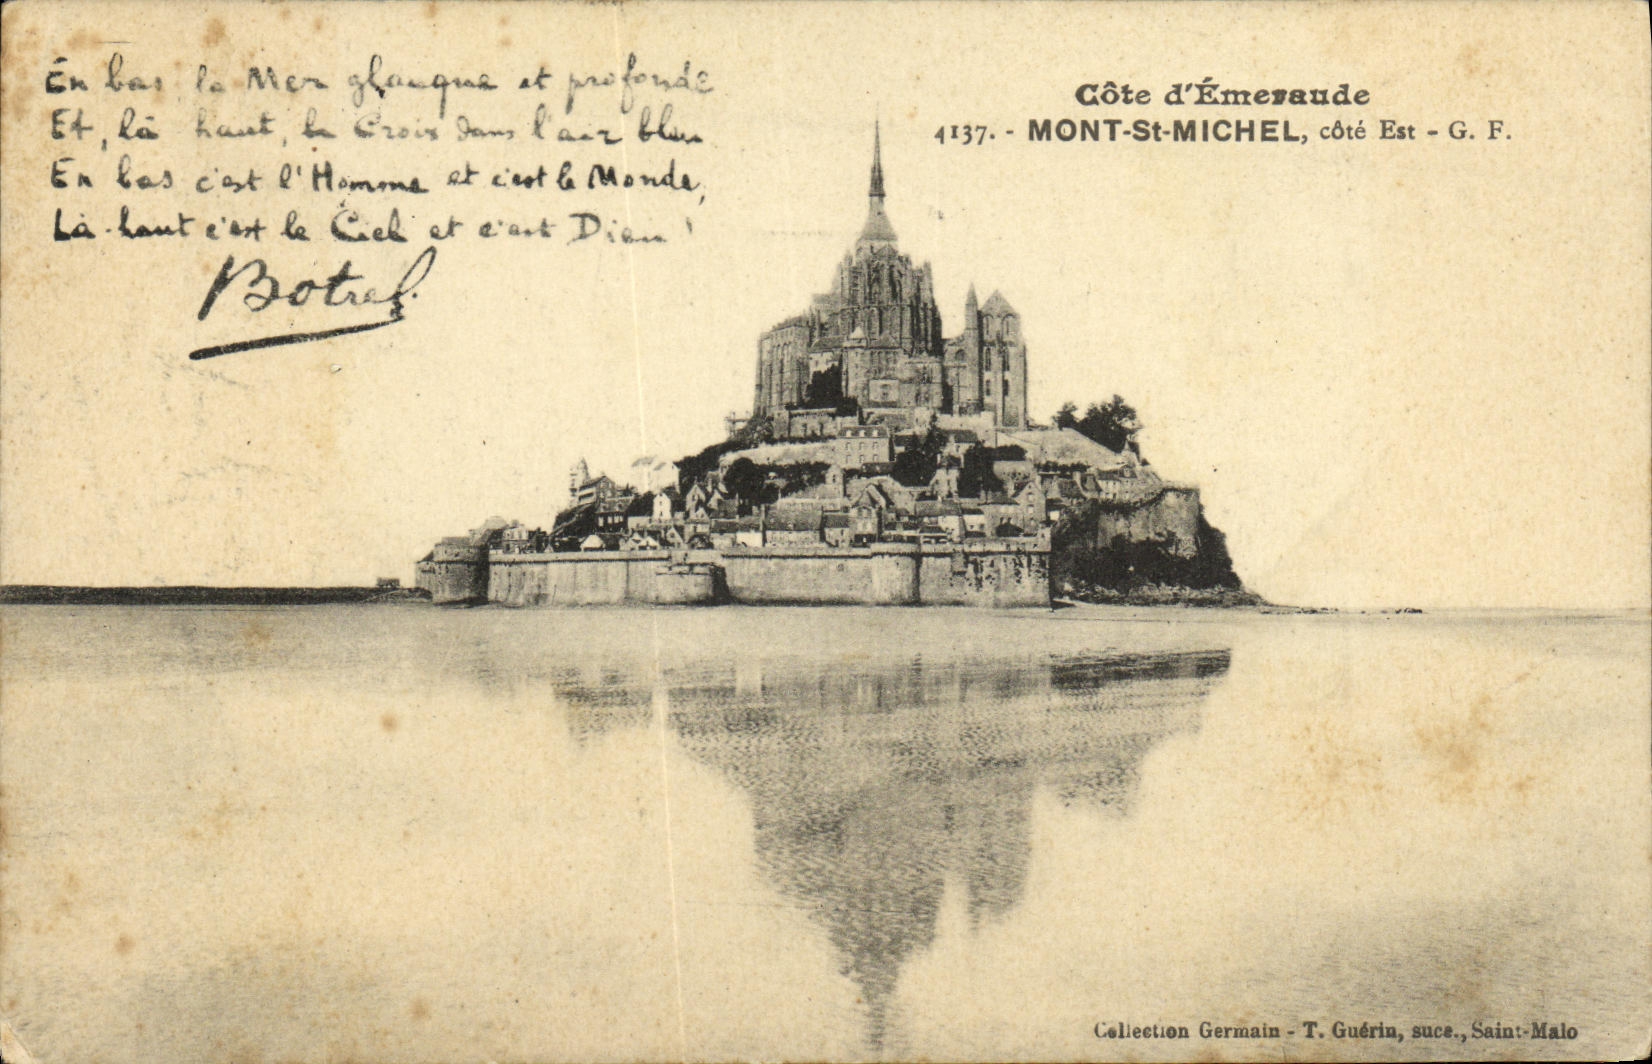 En bas la Mer glauque et profonde
Et, là haut, la Croix dans l'air bleu
En bas c'est l'Homme et c'est le Monde,
Là-haut c'est le Ciel et c'est Dieu !
Botrel.
Côte d'Émeraude
4137. - MONT-St-MICHEL, côté Est - G. F.
Collection Germain - T. Guérin, succ., Saint-Malo